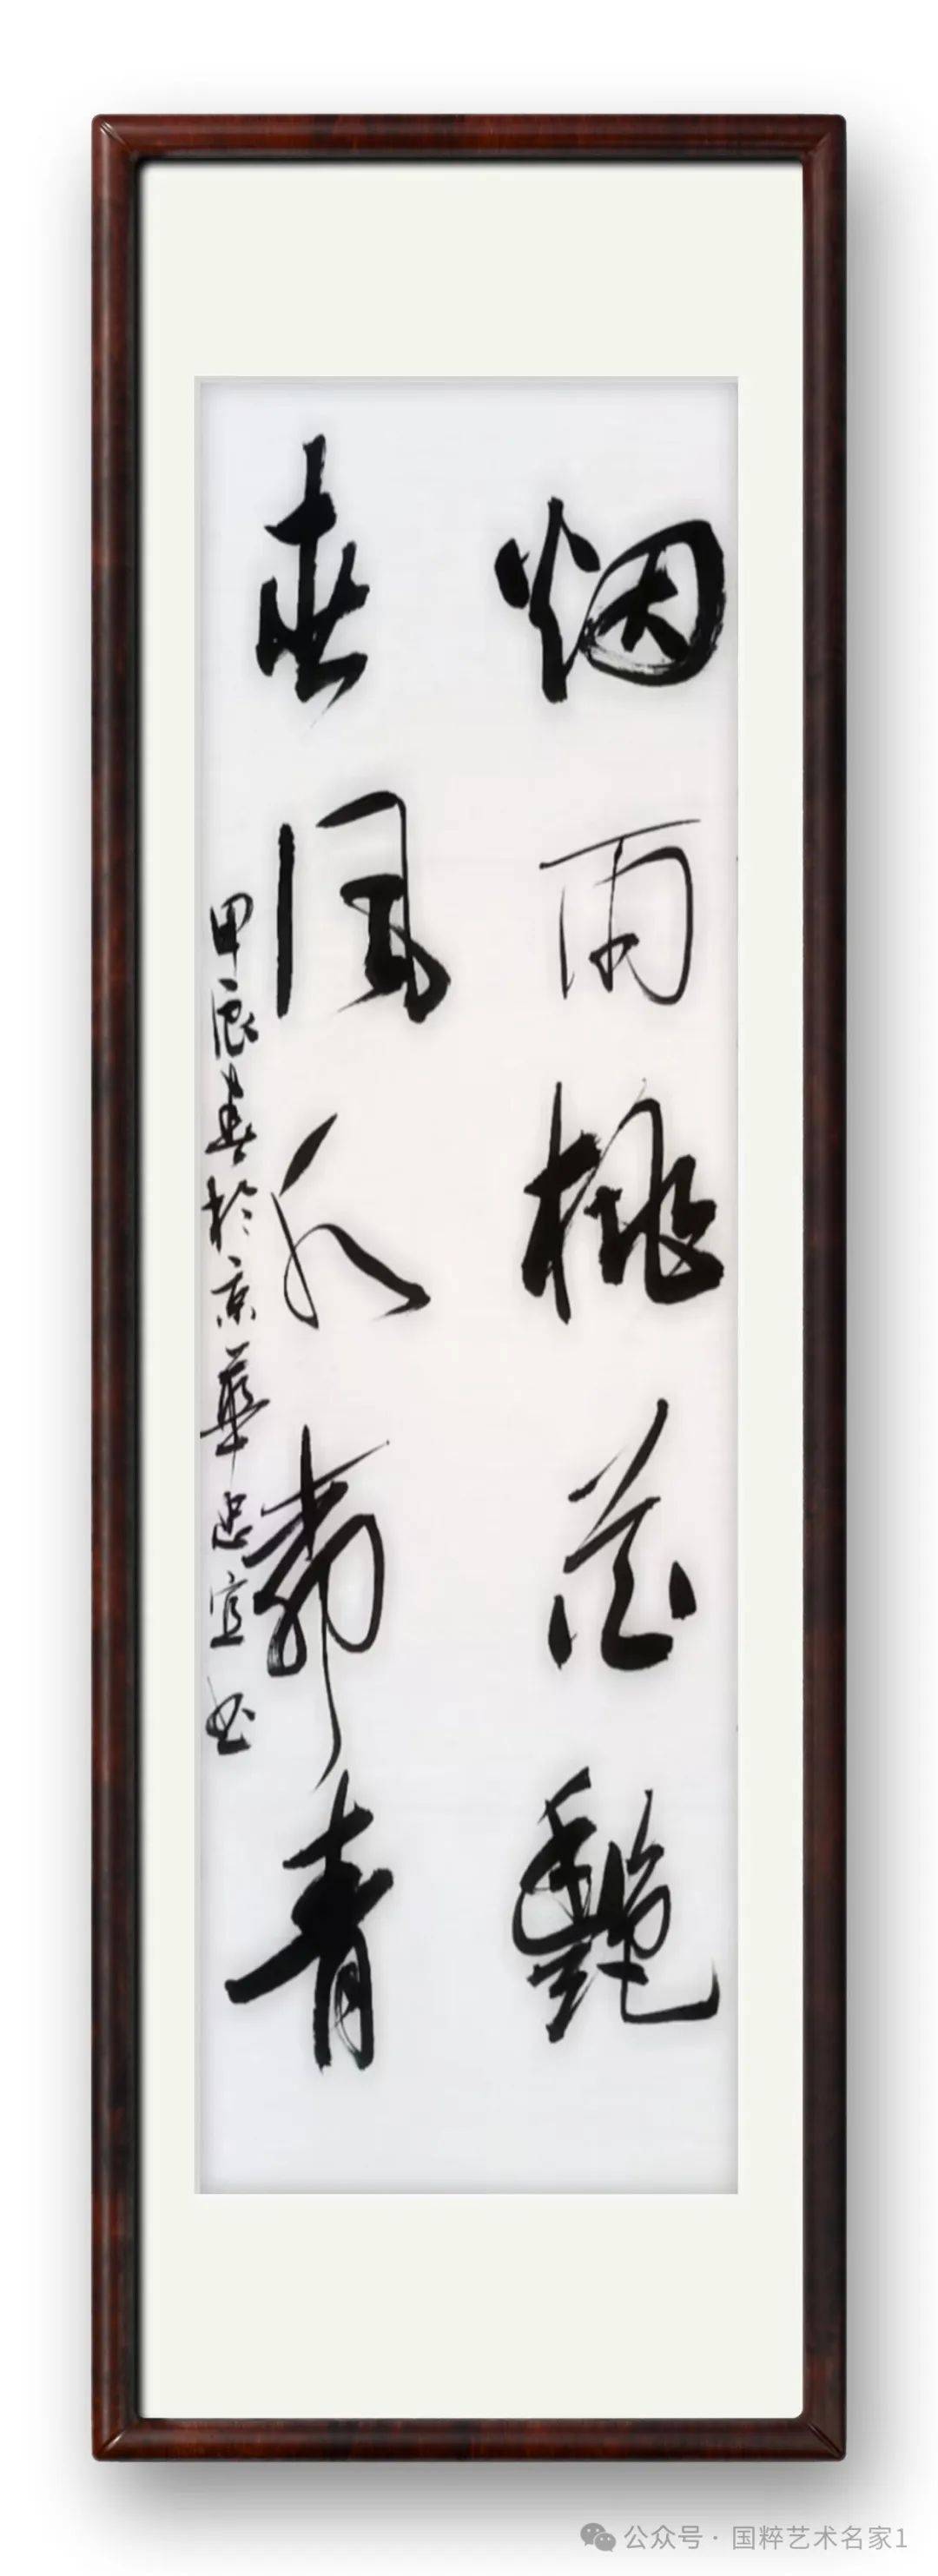 烟雨桃花艳
春风人带青
甲辰春於京华忠宜书
公众号·国粹艺术名家1